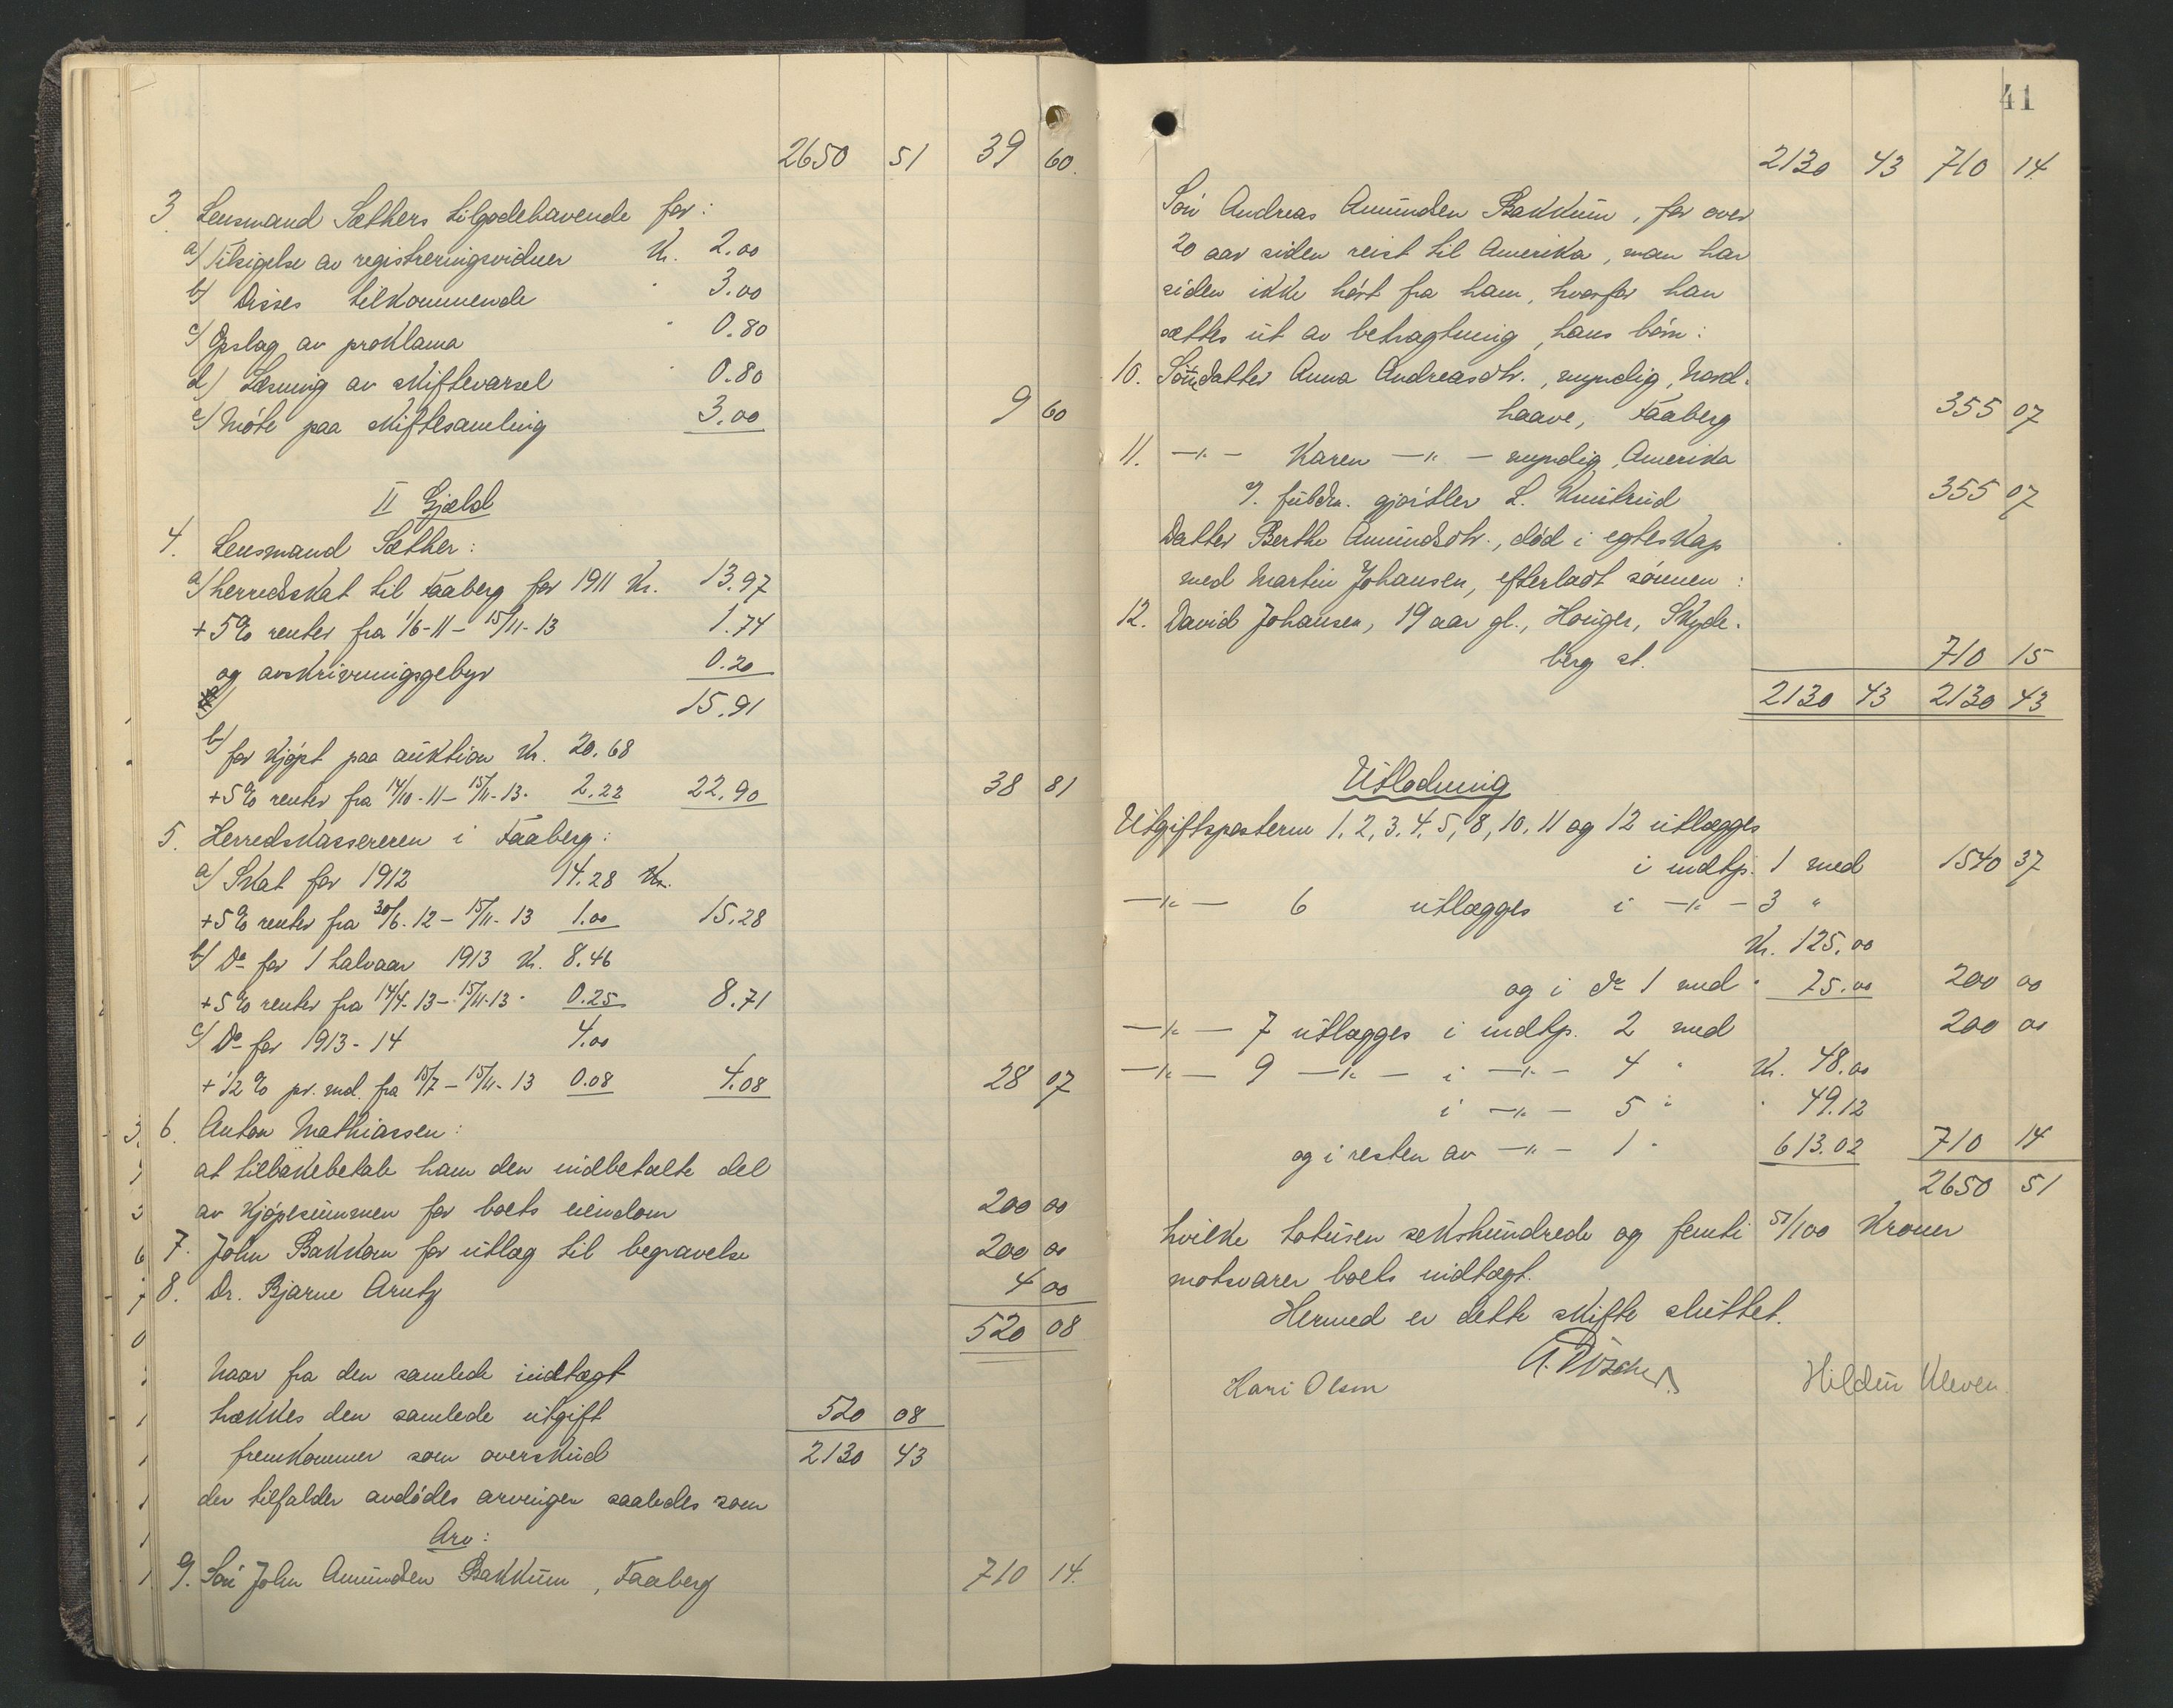 2650 51 39 60.
3. Lensmand Sæthers tilgodehavende for:
a/ Tilsigelse av registreringsvidner Kr. 2.00
b/ Disses tilkommende " 3.00
c/ Opslag av proklama " 0.80
d/ Læsning av skiftevarsel " 0.80
e/ Møte paa skiftesamling 3.00 9 60
II Gjæld
4. Lensmand Sæther:
a/ herredsskat til Faaberg for 1911 Kr. 13.97
+ 5% renter fra 1/6-11 - 15/11-13 1.74
og avskrivningsgebyr 0.20
15.91
b/ for kjøpt paa auktion Kr. 20.68
+ 5% renter fra 14/10-11 - 15/11-13. 2.22 22.90 38 81
5. Herredskassereren i Faaberg:
a/ Skat for 1912 14.28 Kr.
+ 5% renter fra 30/6-12 - 15/11-13 1.00 15.28
b/ Do for 1 halvaar 1913 Kr. 8.46
+ 5% renter fra 14/4-13 - 15/11-13 " 0.25 8.71
c/ Do for 1913-14 4.00
+ 1/2% pr. md. fra 15/7 - 15/11-13 0.08 4.08 28 07
6. Anton Mathiassen:
at tilbakebetale ham den indbetalte del
av kjøpesummen for boets eiendom 200 00
7. John Bakkom for utlæg til begravelse 200 00
8. Dr. Bjarne Arntz 4 00
520 08
Naar fra den samlede indtægt
trækkes den samlede utgift 520 08
fremkommer som overskud 2130 43
der tilfalder avdødes arvinger saaledes som
Arv:
9. Søn John Amundsen Bakkum, Faaberg 710 14.
41
2130 43 710 14
Søn Andreas Amundsen Bakkum, for over
20 aar siden reist til Amerika, man har
siden ikke hørt fra ham, hvorfor han
sættes ut av betragtning, hans børn:
10. Sønnedatter Anna Andreasdtr., myndig, Nord-
haave, Faaberg 355 07
11. -"- Karen -"- myndig, Amerika
v. fuldm. gjørtler L. Knutrud 355 07
Datter Berthe Amundsdtr., død i egteskap
med Martin Johansen, efterladt sønnen:
12. David Johansen, 19 aar gl., Houger, Skyde-
berg st. 710 15
2130 43 2130 43
Utlodning
Utgiftsposterne 1, 2, 3, 4, 5, 8, 10, 11 og 12 utlægges
i indtp. 1 med 1540 37
-"- 6 utlægges i -"- 3 "
Kr. 125.00
og i do 1 med " 75.00 200 00
-"- 7 utlægges i indtp. 2 med 200 00
-"- 9 -"- i -"- 4 " Kr. 48.00
i -"- 5 " " 49.12
og i resten av -"- 1 " 613.02 710 14
2650 51
hvilke totusen sekshundrede og femti 51/100 kroner
motsvarer boets indtægt.
Hermed er dette skifte sluttet.
Kari Olsen Hildur Kleven